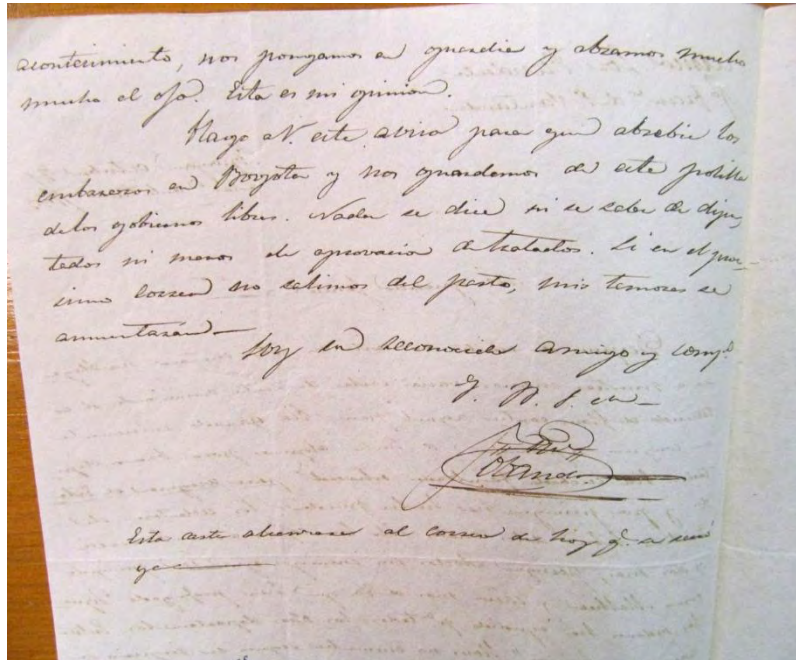 acontecimiento, nos pongamos en guardia y abramos mucho
mucho el ojo. Esta es mi opinion.
Hago a V. este aviso para que los
en Bogota y nos guardemos de esta polilla
delos gobiernos libres. Nada se dice ni se sabe de dipu,
tados ni menos de aprovacion de tratados. Si en el pro-
simo correo no salimos del parto, mis temores se
aumentarán—
Soy su reconocido amigo y comp.
Obando
Esta carta alcanzará al correo de hoy q. se
ya